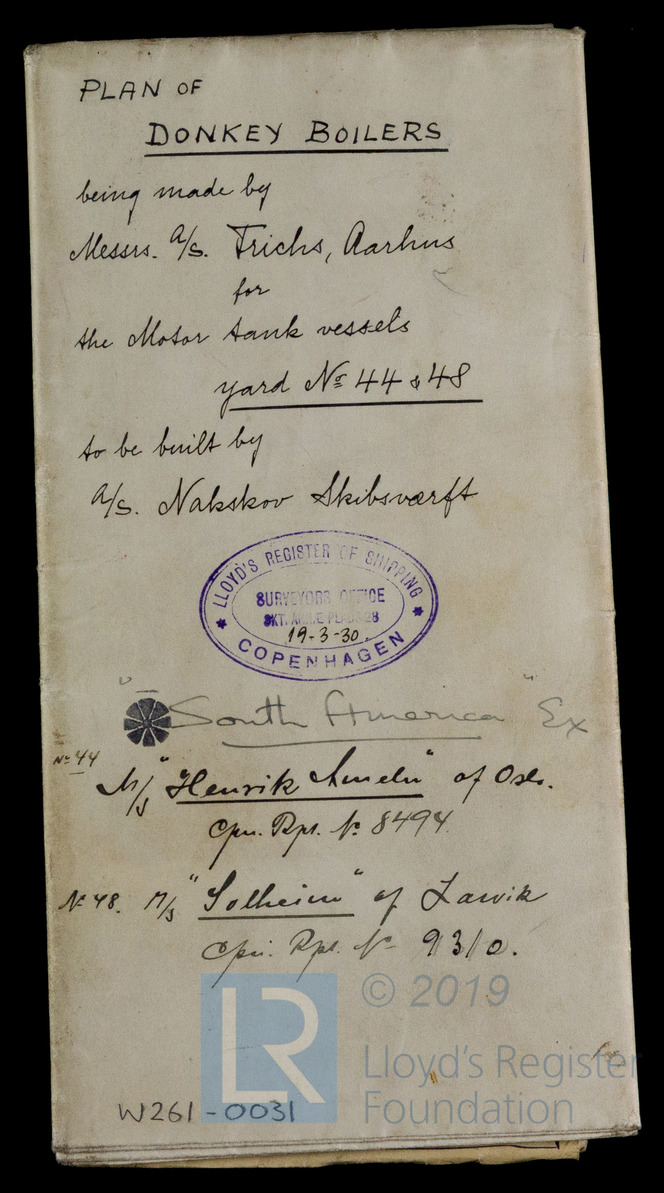 PLAN OF
DONKEY BOILERS
being made by
Messrs. A/S. Frichs, Aarhus
for
the Motor tank vessels
yard No 44 & 48
to be built by
A/S. Nakskov Skibsværft
LLOYD'S REGISTER OF SHIPPING
SURVEYORS OFFICE
19-3-30.
COPENHAGEN
"South America" Ex
No 44
M/S "Henrik Ameln" of Oslo.
Cpn. Rpt. No 8494.
No 48. M/S "Solheim" of Larvik
Cpn. Rpt. No 9310.
LR
© 2019
Lloyd's Register
Foundation
W261-0031